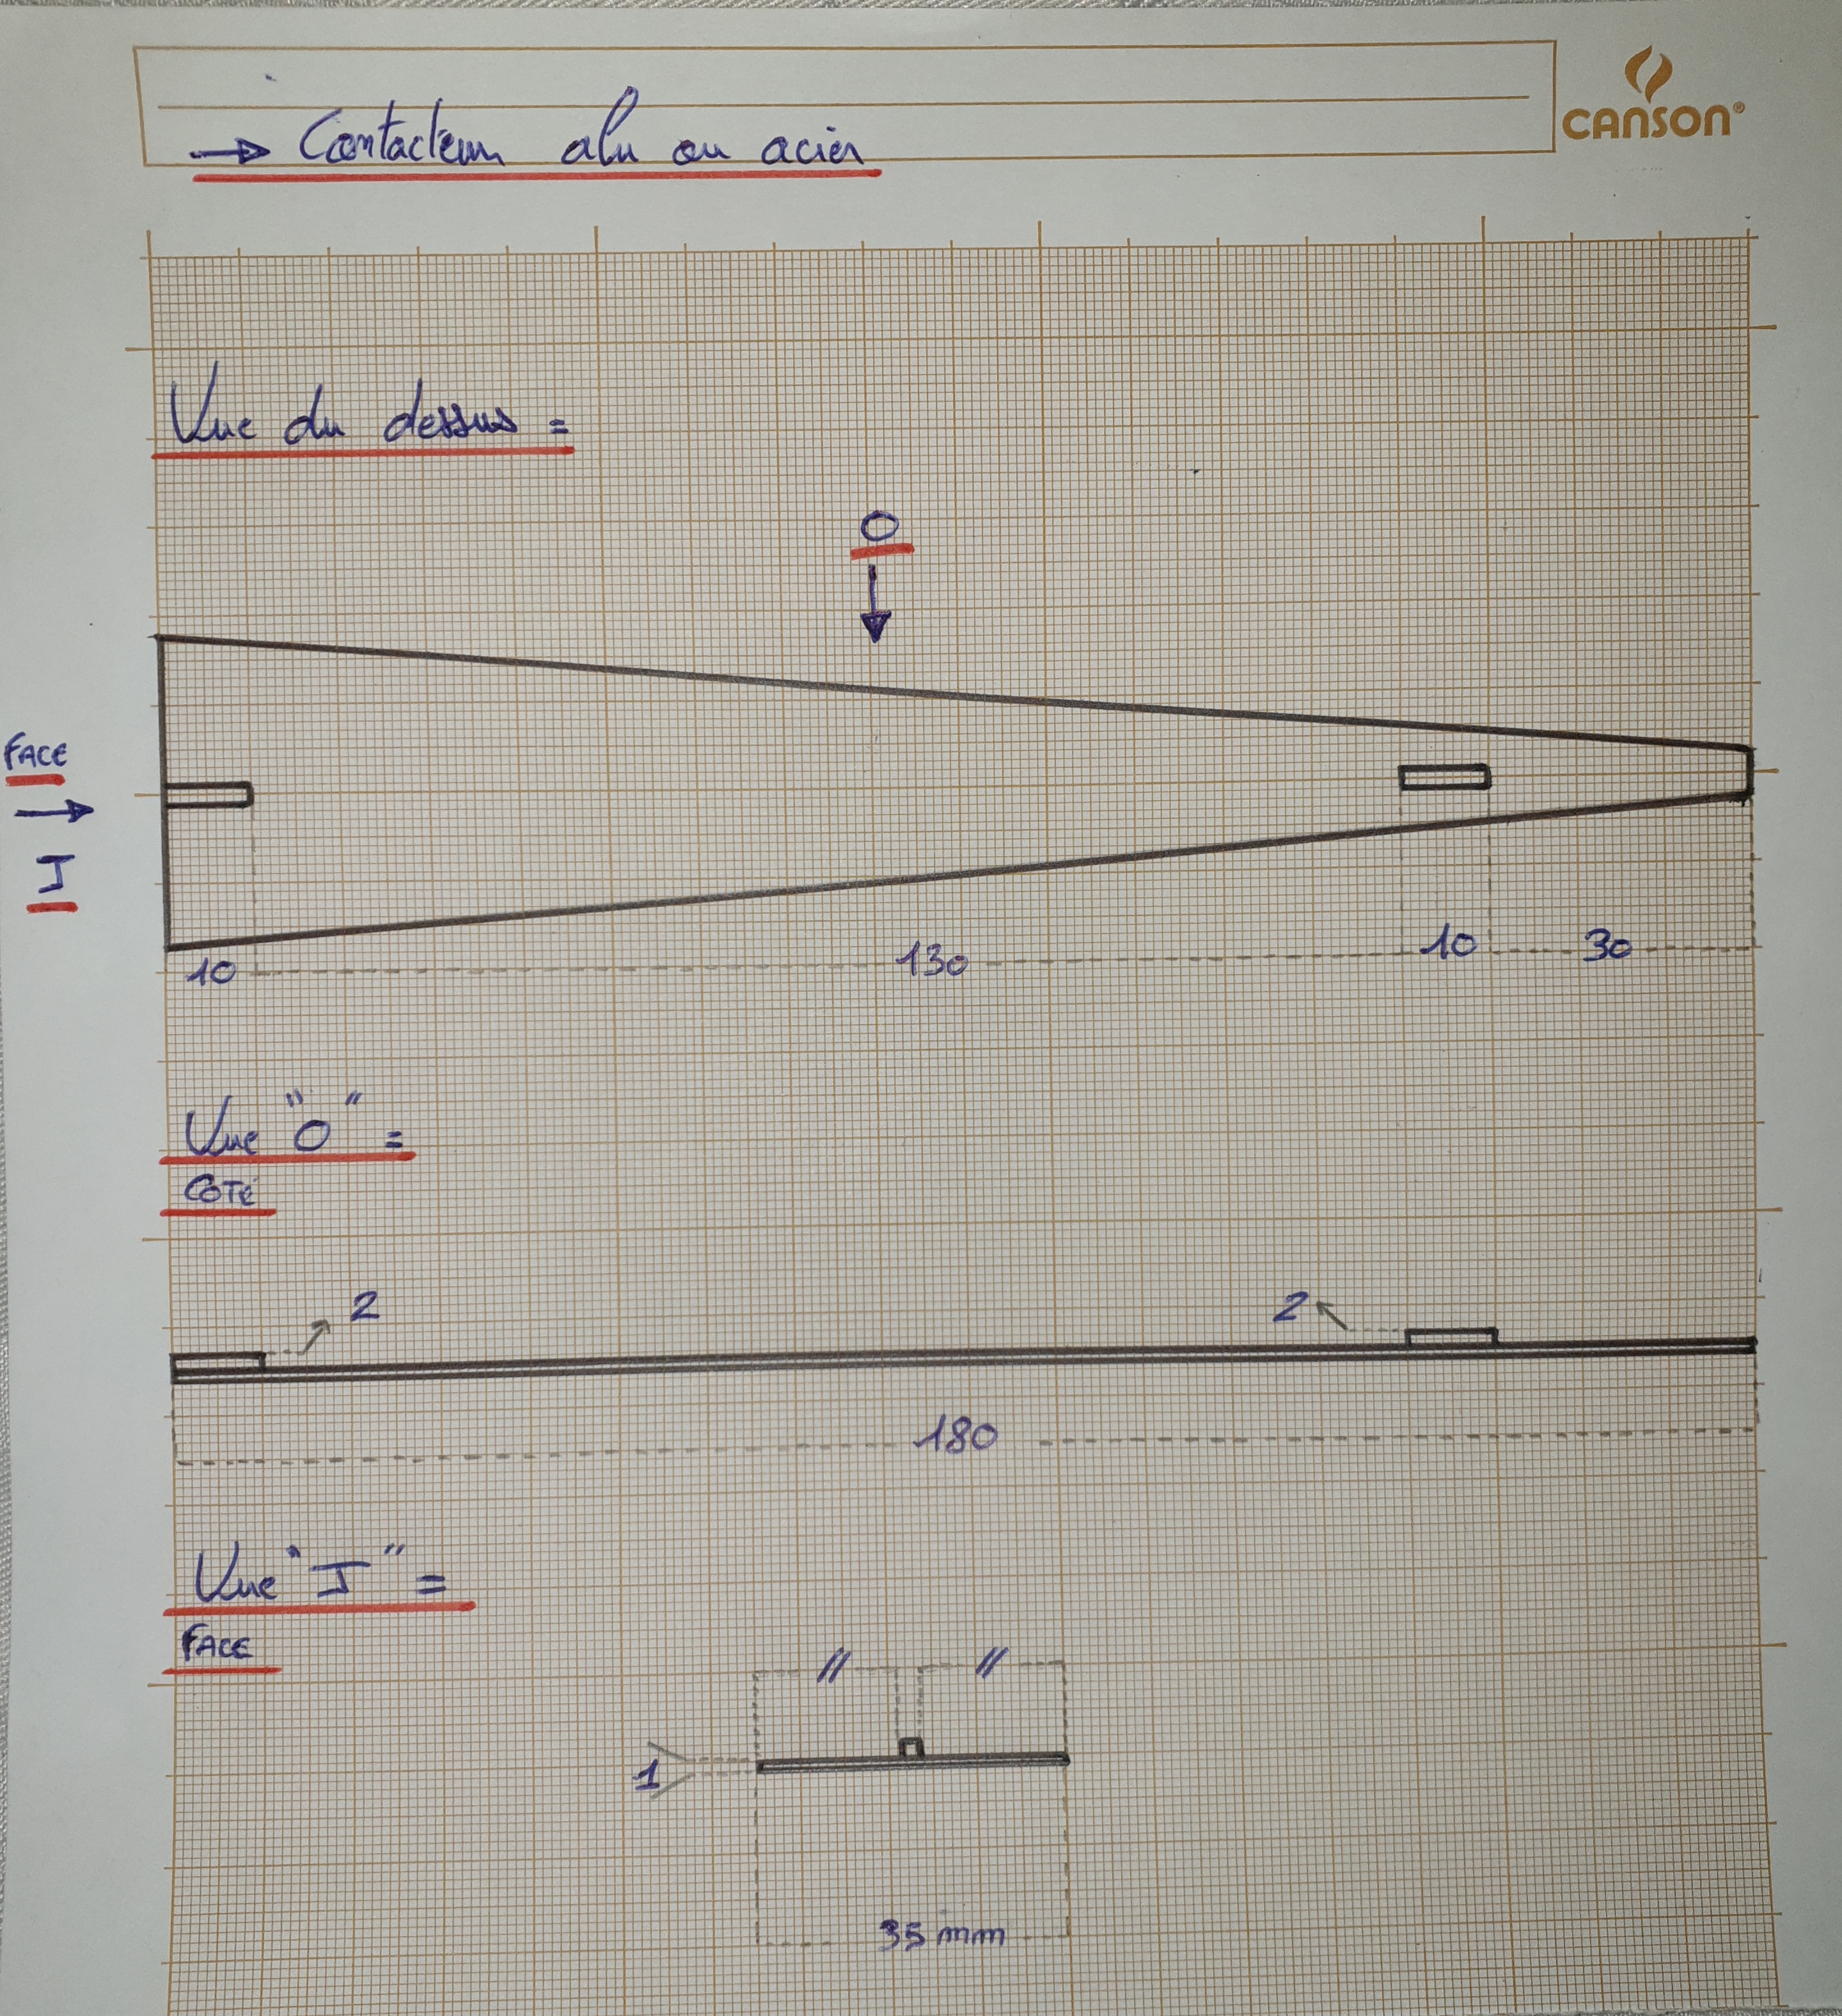 CANSON®
→ Contacteur alu ou acier
Vue du dessus =
O
FACE
I
10 130 10 30
Vue "O" =
COTÉ
2 2
180
Vue "I" =
FACE
// //
1
35 mm